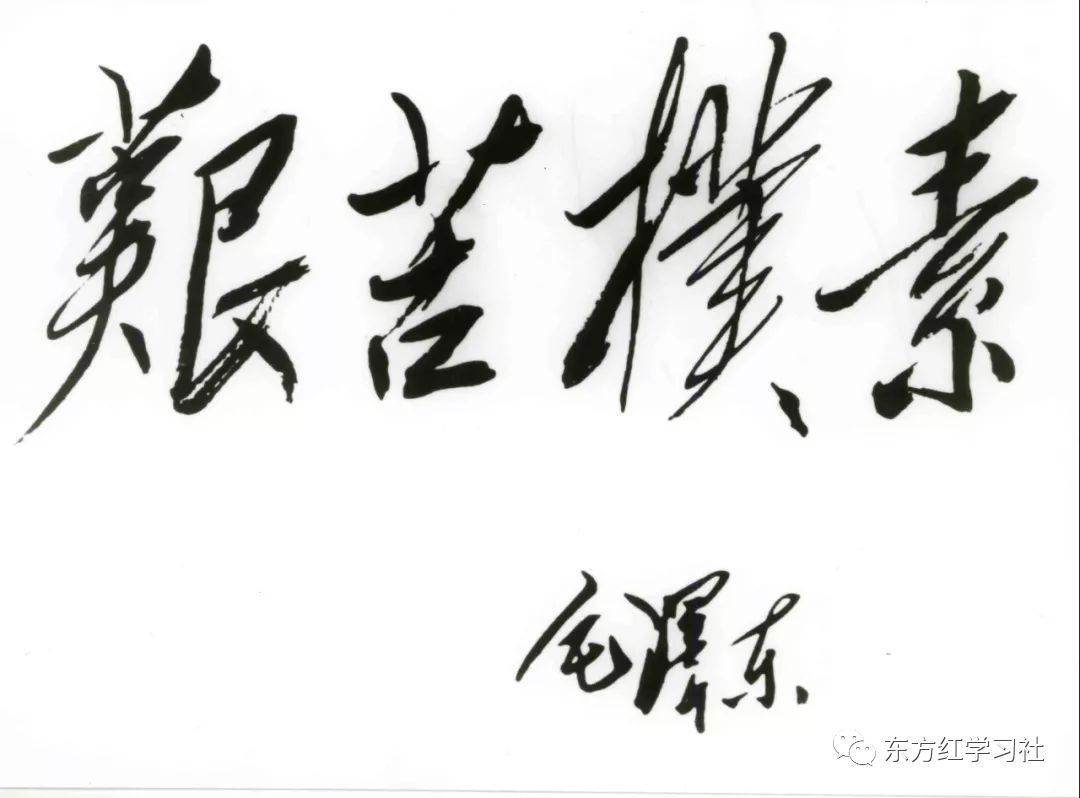 艱苦樸素
毛澤东
东方红学习社